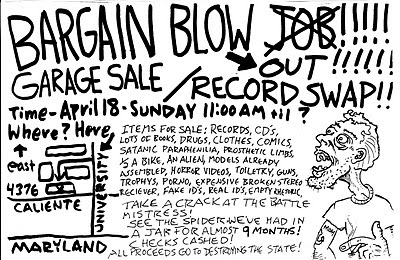 BARGAIN BLOW JOB!!!!!
OUT
GARAGE SALE / RECORD SWAP!!
Time - April 18 - SUNDAY 11:00 AM til ?
Where? Here,
east
4376
CALIENTE
UNIVERSITY
MARYLAND
ITEMS FOR SALE; RECORDS, CD'S,
LOTS OF BOOKS, DRUGS, CLOTHES, COMICS,
SATANIC PARAPHENILIA, PROSTHETIC LIMBS,
1/2 A BIKE, AN ALIEN, MODELS ALREADY
ASSEMBLED, HORROR VIDEOS, TOILETRY, GUNS,
TROPHYS, PORNO, EXPENSIVE BROKEN STEREO
RECIEVER, FAKE ID'S, REAL ID'S, EMPTY RHETORIC,
TAKE A CRACK AT THE BATTLE
MISTRESS!
SEE THE SPIDER WE'VE HAD IN
A JAR FOR ALMOST 9 MONTHS!
CHECKS CASHED!
ALL PROCEEDS GO TO DESTROYING THE STATE!